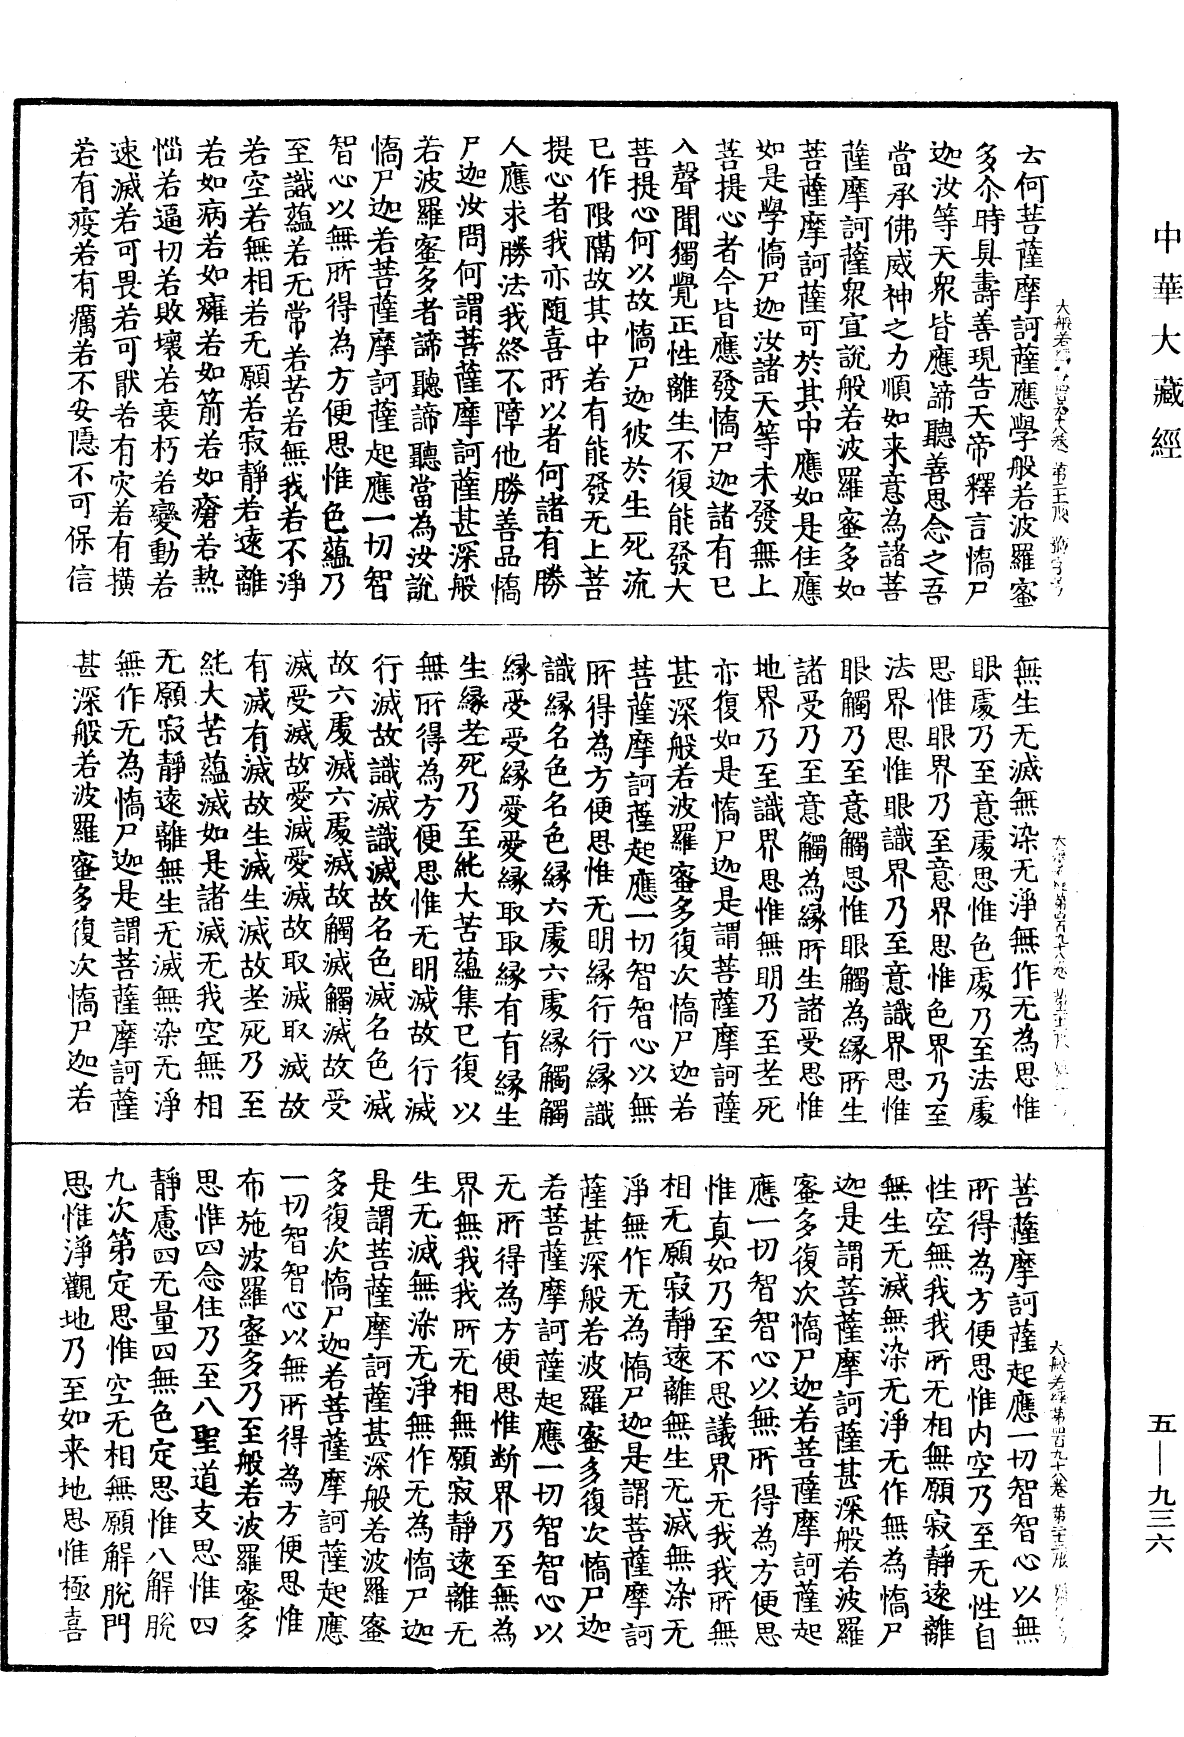 中華大藏經
云何菩薩摩訶薩應學般若波羅蜜
多尒時具壽善現告天帝釋言憍尸
迦汝等天衆皆應諦聽善思念之吾
當承佛威神之力順如来意為諸菩
薩摩訶薩衆宣說般若波羅蜜多如
菩薩摩訶薩可於其中應如是住應
如是學憍尸迦汝諸天等未發無上
菩提心者今皆應發憍尸迦諸有已
入聲聞獨覺正性離生不復能發大
菩提心何以故憍尸迦彼於生死流
已作限隔故其中若有能發无上菩
提心者我亦隨喜所以者何諸有勝
人應求勝法我終不障他勝善品憍
尸迦汝問何謂菩薩摩訶薩甚深般
若波羅蜜多者諦聽諦聽當為汝說
憍尸迦若菩薩摩訶薩起應一切智
智心以無所得為方便思惟色蘊乃
至識蘊若无常若苦若無我若不淨
若空若無相若无願若寂靜若遠離
若如病若如癰若如箭若如瘡若熱
惱若逼切若敗壞若衰朽若變動若
速滅若可畏若可猒若有灾若有横
若有疫若有癘若不安隱不可保信
無生无滅無染无淨無作无為思惟
眼處乃至意處思惟色處乃至法處
思惟眼界乃至意界思惟色界乃至
法界思惟眼識界乃至意識界思惟
眼觸乃至意觸思惟眼觸為緣所生
諸受乃至意觸為緣所生諸受思惟
地界乃至識界思惟無明乃至老死
亦復如是憍尸迦是謂菩薩摩訶薩
甚深般若波羅蜜多復次憍尸迦若
菩薩摩訶薩起應一切智智心以無
所得為方便思惟无明緣行行緣識
識緣名色名色緣六處六處緣觸觸
緣受受緣愛愛緣取取緣有有緣生
生緣老死乃至純大苦蘊集已復以
無所得為方便思惟无明滅故行滅
行滅故識滅識滅故名色滅名色滅
故六處滅六處滅故觸滅觸滅故受
滅受滅故愛滅愛滅故取滅取滅故
有滅有滅故生滅生滅故老死乃至
純大苦蘊滅如是諸滅无我空無相
无願寂靜遠離無生无滅無染无淨
無作无為憍尸迦是謂菩薩摩訶薩
甚深般若波羅蜜多復次憍尸迦若
大般若經第四百九十八卷
菩薩摩訶薩起應一切智智心以無
所得為方便思惟内空乃至无性自
性空無我我所无相無願寂靜遠離
無生无滅無染无淨无作無為憍尸
迦是謂菩薩摩訶薩甚深般若波羅
蜜多復次憍尸迦若菩薩摩訶薩起
應一切智智心以無所得為方便思
惟真如乃至不思議界无我我所無
相无願寂靜遠離無生无滅無染无
淨無作无為憍尸迦是謂菩薩摩訶
薩甚深般若波羅蜜多復次憍尸迦
若菩薩摩訶薩起應一切智智心以
无所得為方便思惟断界乃至無為
界無我我所无相無願寂靜遠離无
生无滅無染无淨無作无為憍尸迦
是謂菩薩摩訶薩甚深般若波羅蜜
多復次憍尸迦若菩薩摩訶薩起應
一切智智心以無所得為方便思惟
布施波羅蜜多乃至般若波羅蜜多
思惟四念住乃至八聖道支思惟四
靜慮四无量四無色定思惟八解脫
九次第定思惟空无相無願解脫門
思惟淨觀地乃至如来地思惟極喜
五—九三六